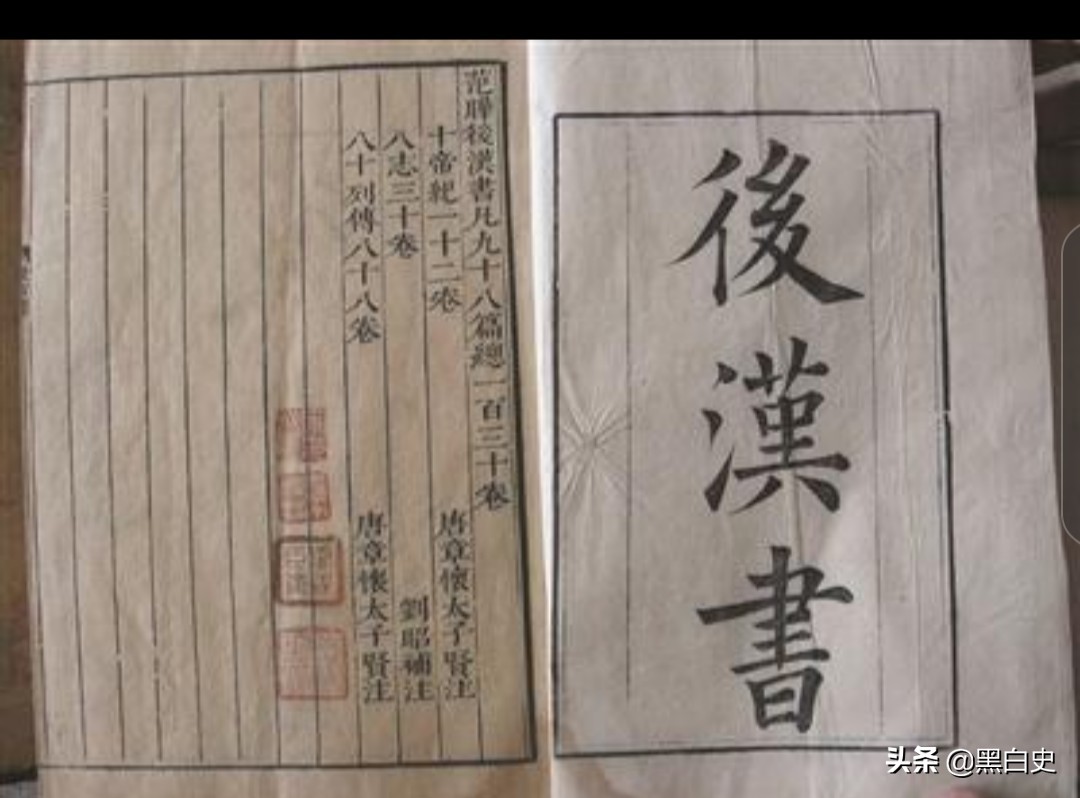 後漢書
范瞱後漢書凡九十八篇總一百三十卷
十帝紀一十二卷 唐章懷太子賢注
八志三十卷 劉昭補注
八十列傳八十八卷 唐章懷太子賢注
头条 @黑白史